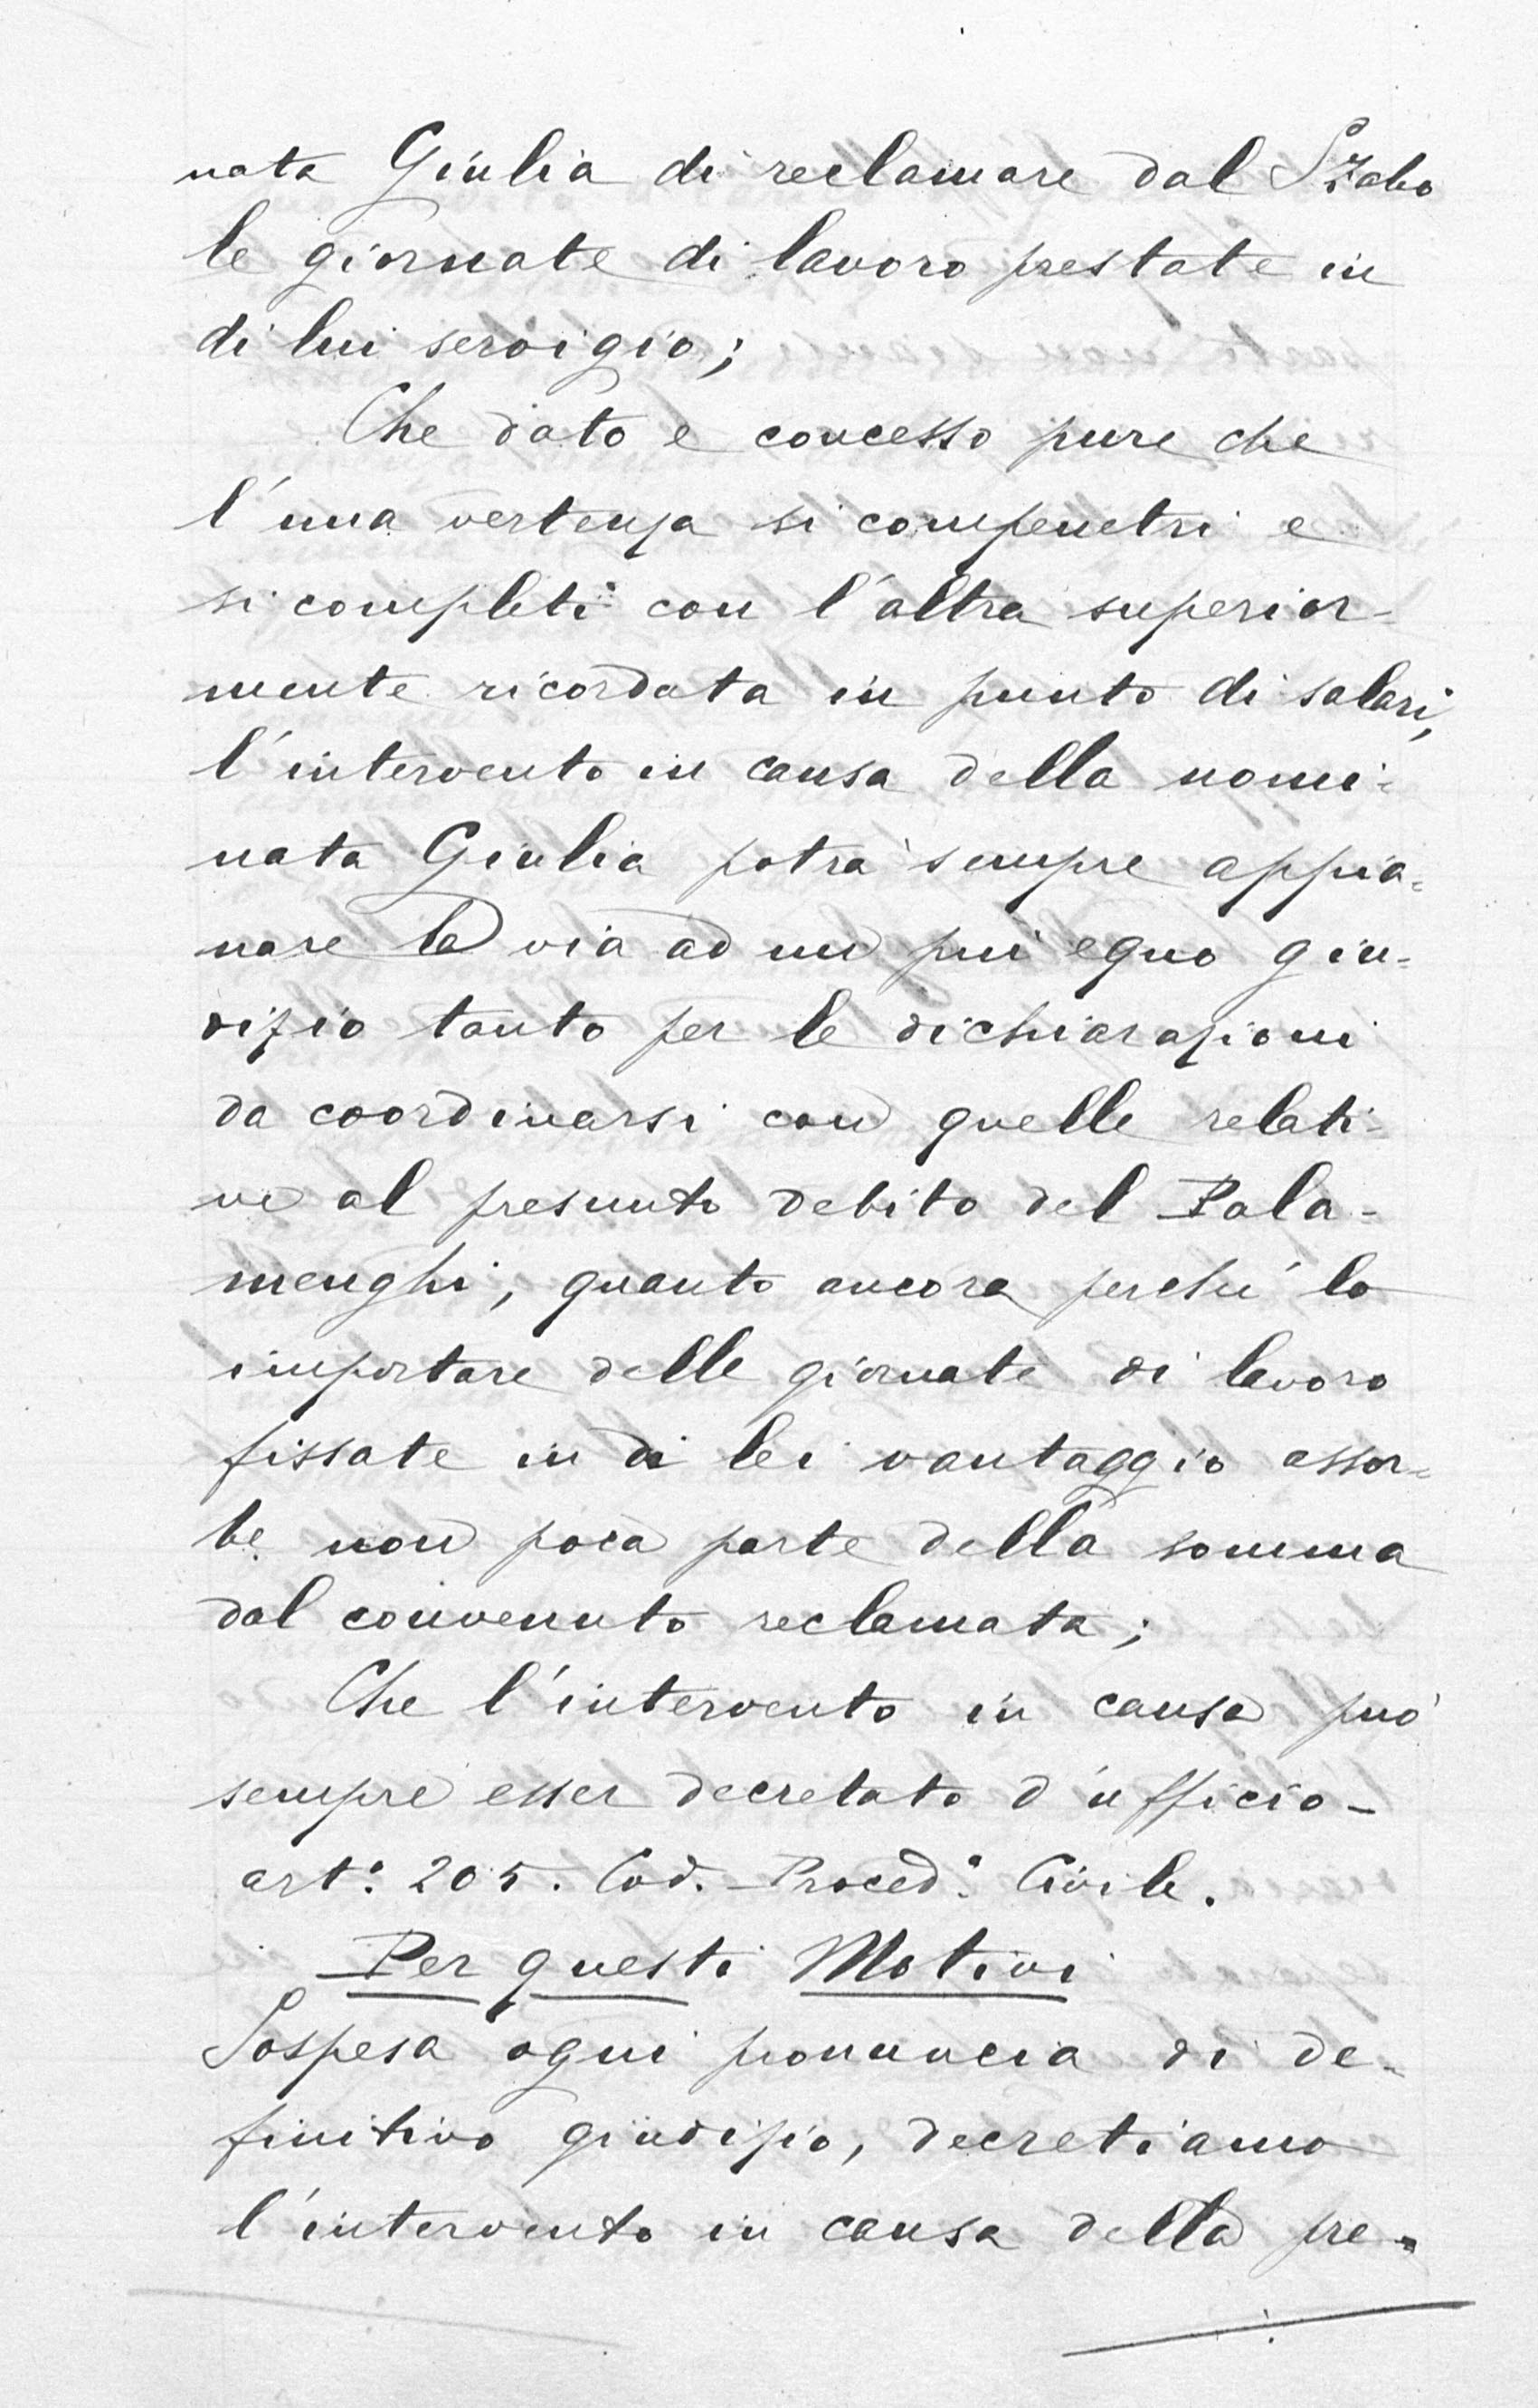 nata Giulia di reclamare dal Szabo
le giornate di lavoro prestate in
di lui servigio;
Che dato e concesso pure che
l'una vertenza si compenetri e
si completi con l'altra superior-
mente ricordata in punto di salari,
l'intervento in causa della nomi-
nata Giulia potrà sempre appia-
nare la via ad un più equo giu-
dizio tanto per le dichiarazioni
da coordinarsi con quelle relati-
ve al presunto debito del Pala-
menghi, quanto ancora perché lo
importare delle giornate di lavoro
fissate in di lei vantaggio assor-
be non poca parte della somma
dal convenuto reclamata;
Che l'intervento in causa può
sempre esser decretato d'ufficio -
art.° 205. Cod. Proced.ª Civile.
Per questi Motivi
Sospesa ogni pronuncia di de-
finitivo giudizio, decretiamo
l'intervento in causa della pre-